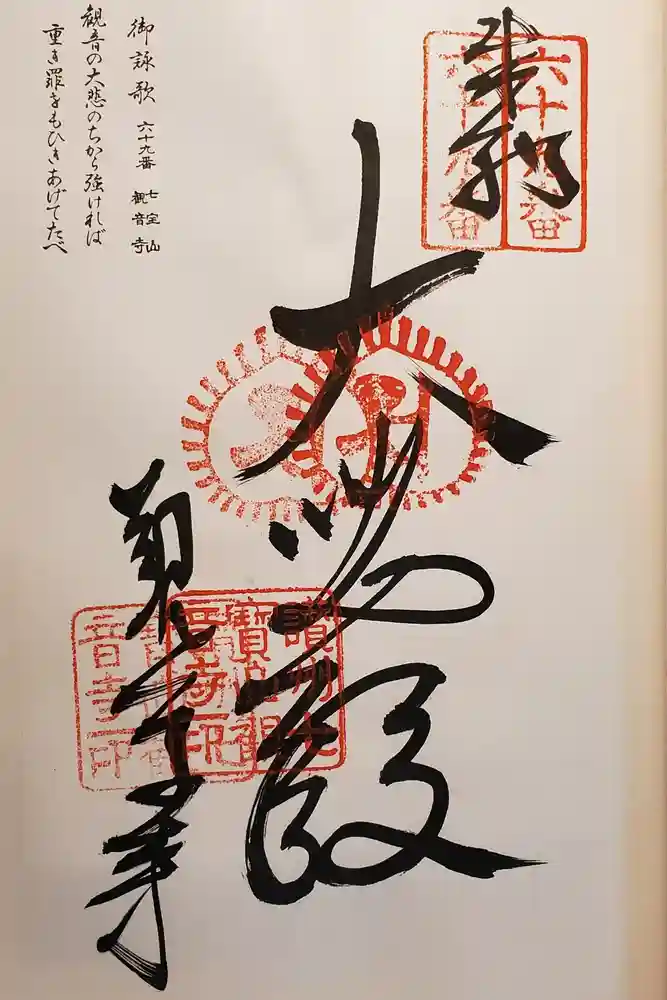 奉納
六十九番
大悲殿
観音寺
讃州七
寶山観
音寺印
御詠歌 六十九番 七宝山 観音寺
観音の大悲のちから強ければ
重き罪をもひきあげてたべ